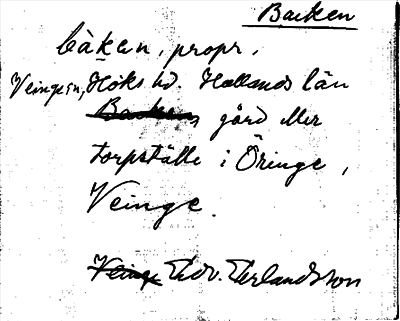 Backen
bàken, propr.
Veinge sn, Höks hd. Hallands län
Backen, gård eller
torpställe i Öringe,
Veinge.
Veinge Edv. Erlandsson